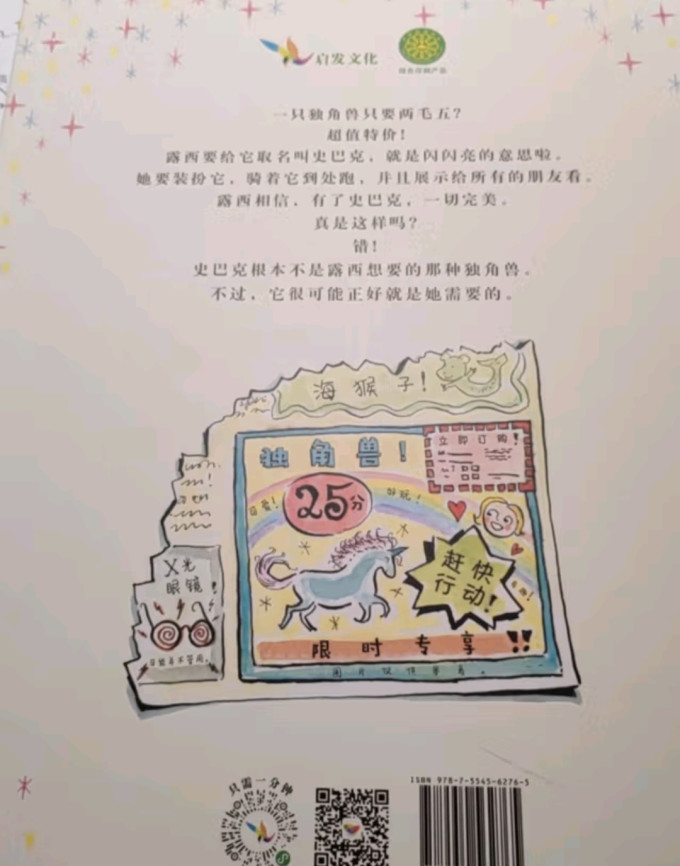 启发文化
绿色印刷产品
一只独角兽只要两毛五？
超值特价！
露西要给它取名叫史巴克，就是闪闪亮的意思啦。
她要装扮它，骑着它到处跑，并且展示给所有的朋友看。
露西相信，有了史巴克，一切完美。
真是这样吗？
错！
史巴克根本不是露西想要的那种独角兽。
不过，它很可能正好就是她需要的。
海猴子！
独角兽！
立即订购！
可爱！
25分
好玩！
赶快
行动！
X光
眼镜！
限时专享！！
图片仅供参考。
只需一分钟
ISBN 978-7-5545-6276-5